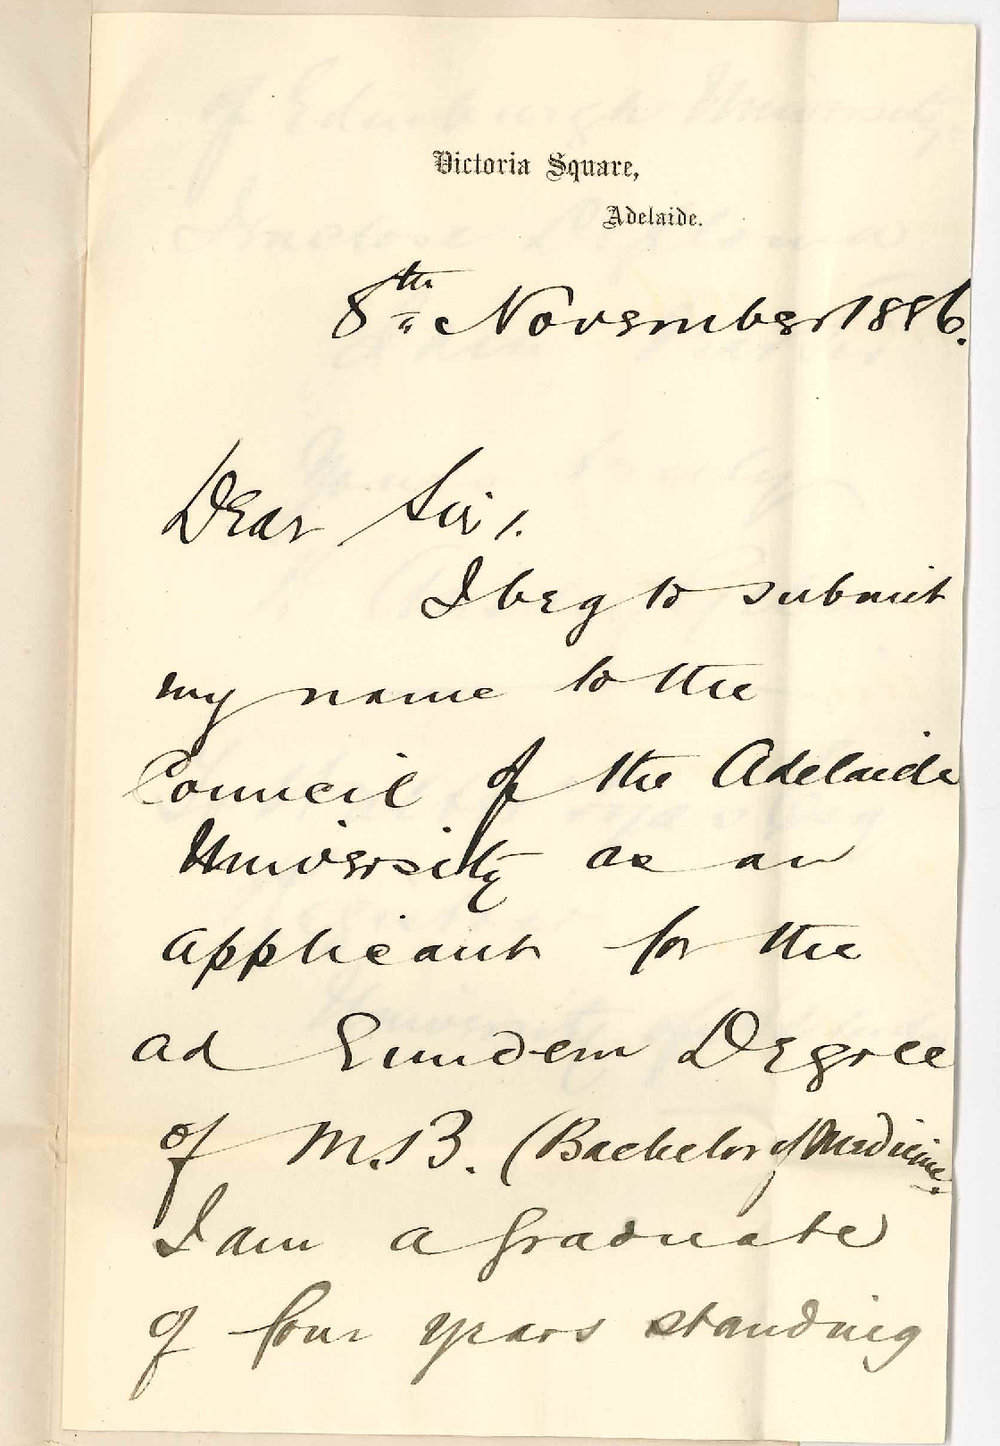 Victoria Square,
Adelaide.
8th November 1886.
Dear Sir,
I beg to submit
my name to the
Council of the Adelaide
University as an
applicant for the
ad Eundem Degree
of M.B. (Bachelor of Medicine.
I am a graduate
of four years standing